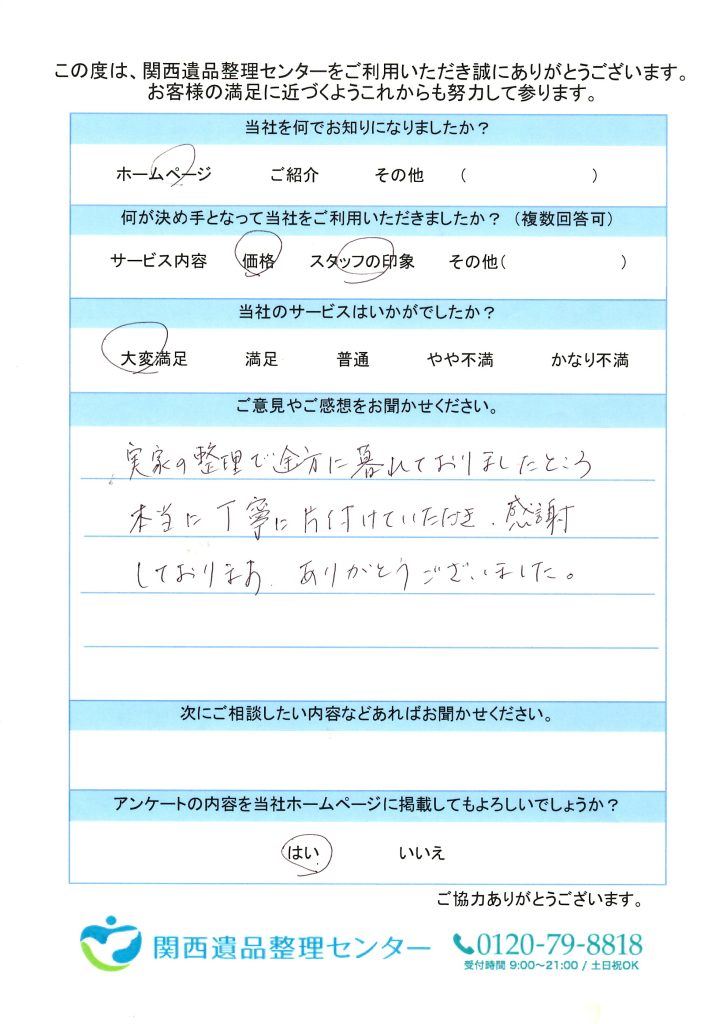 この度は、関西遺品整理センターをご利用いただき誠にありがとうございます。
お客様の満足に近づくようこれからも努力して参ります。
当社を何でお知りになりましたか？
ホームページ ご紹介 その他 （ ）
何が決め手となって当社をご利用いただきましたか？（複数回答可）
サービス内容 価格 スタッフの印象 その他（ ）
当社のサービスはいかがでしたか？
大変満足 満足 普通 やや不満 かなり不満
ご意見やご感想をお聞かせください。
実家の整理で途方に暮れておりましたところ
本当に丁寧に片付けていただき、感謝
しております。ありがとうございました。
次にご相談したい内容などあればお聞かせください。
アンケートの内容を当社ホームページに掲載してもよろしいでしょうか？
はい いいえ
ご協力ありがとうございます。
関西遺品整理センター 0120-79-8818
受付時間 9:00～21:00 / 土日祝OK